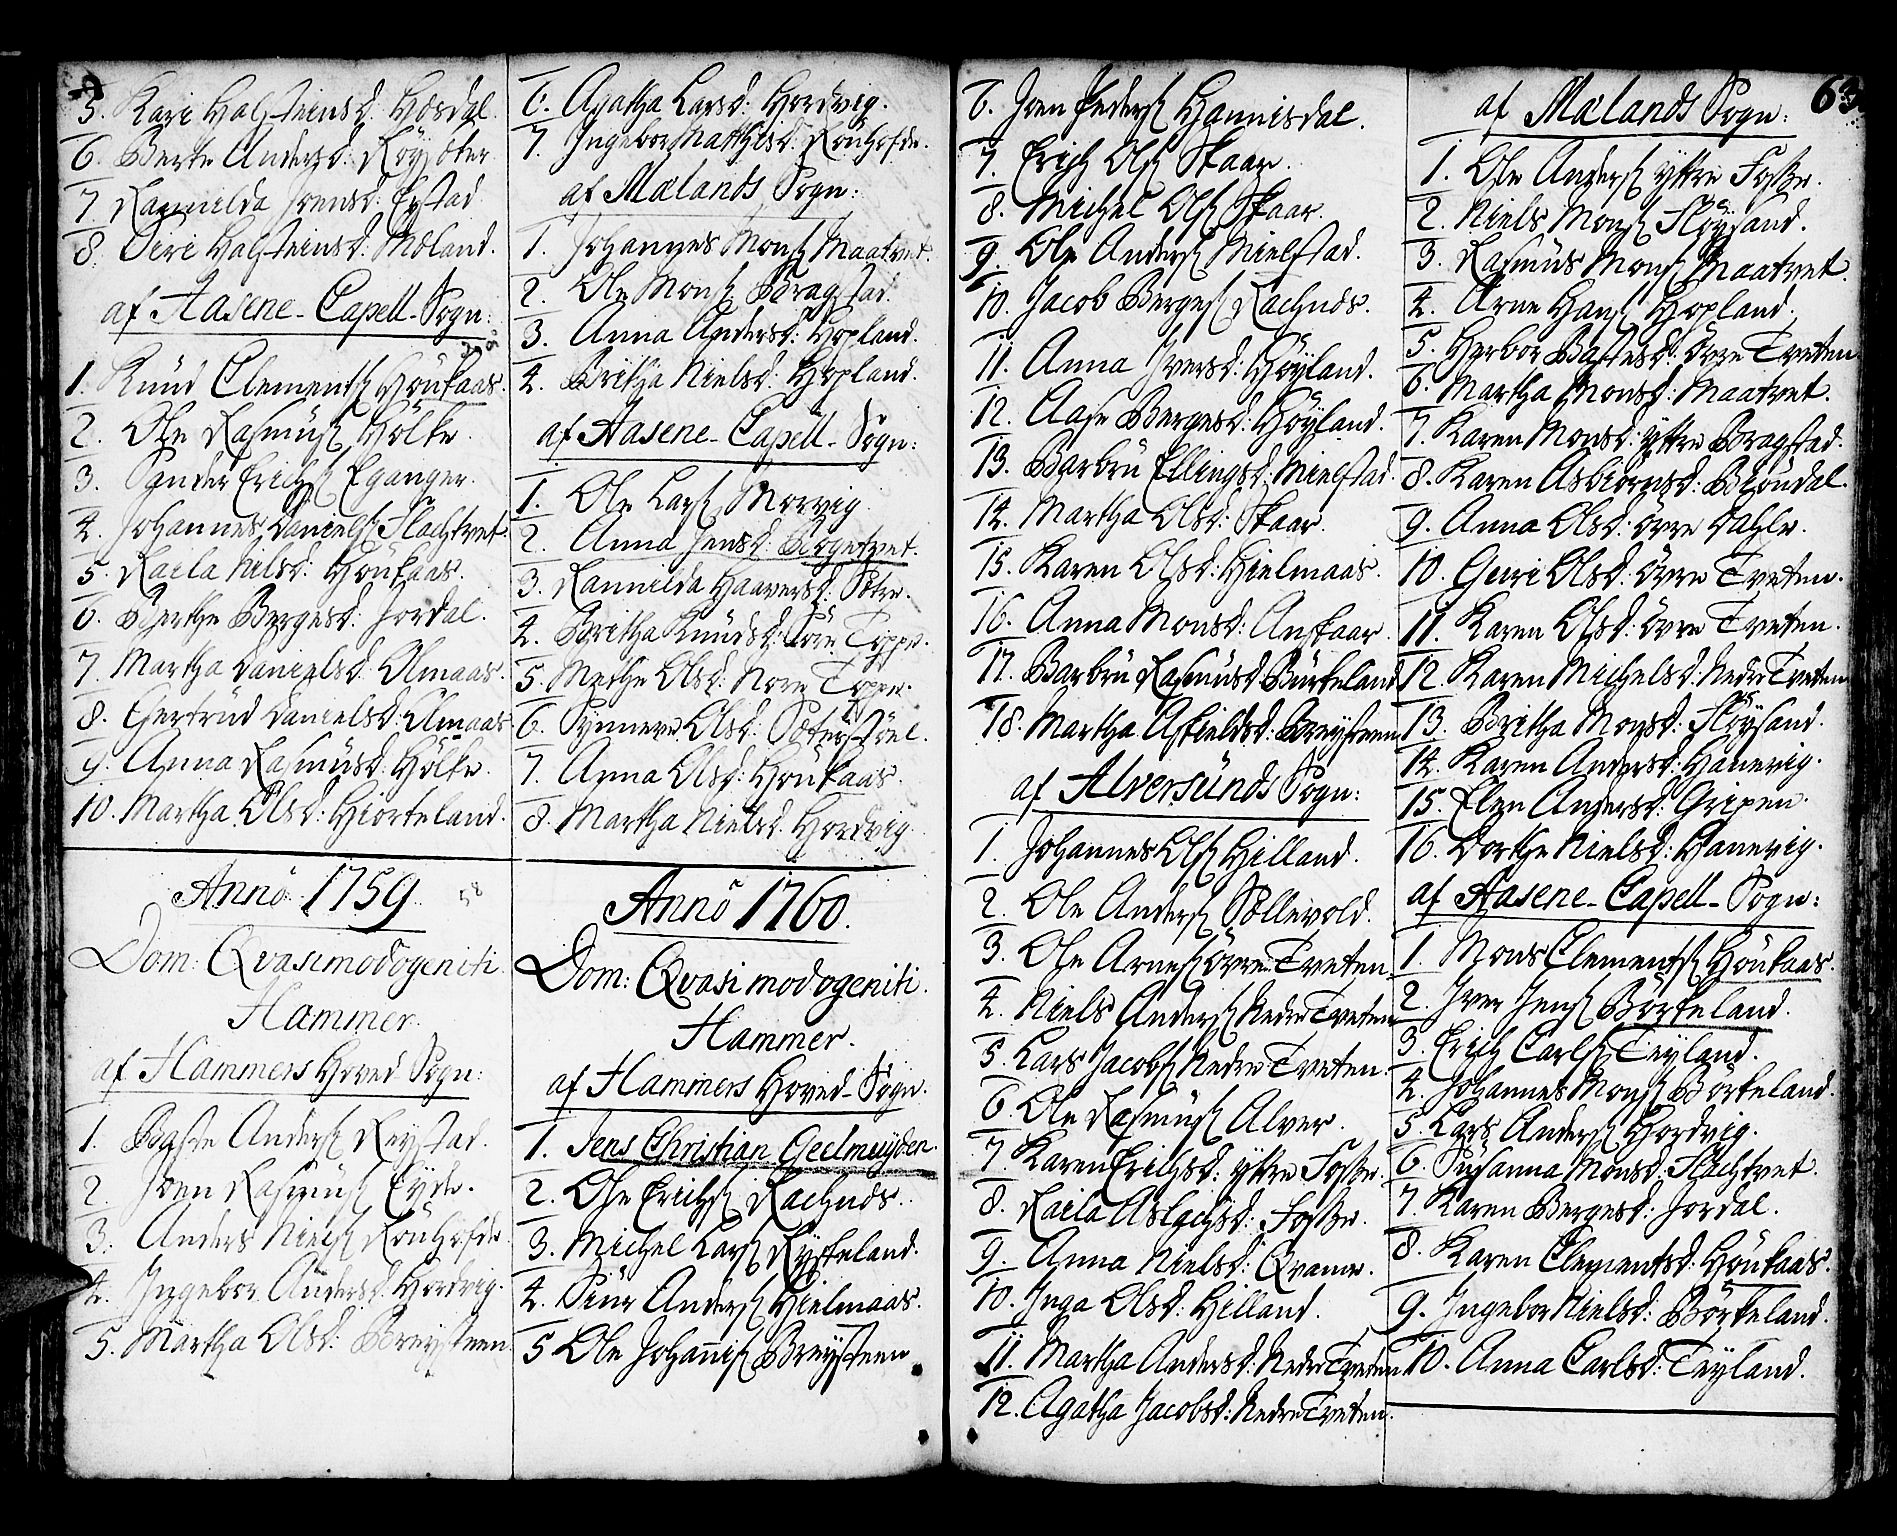 5. Kari Halsteinsd: Hosdal.
6. Berte Andersd: Röysöter
7. Rannilda Joensd: Eystad
8. Siri Halsteinsd: Mæland.
af Aasene-Capell-Sogn:
1. Knud Clements. Höukaas.
2. Ole Rasmus. Hölke.
3. Sander Erichs. Eganger.
4. Johannes Daniels. Flachtvet.
5. Raela Nilsd: Höukaas.
6. Berthe Bergesd: Jordal.
7. Martha Danielsd: Olmaas.
8. Gertrud Danielsd: Olmaas
9. Anna Rasmusd: Hölke.
10. Martha Olsd: Hiorteland.
Anno 1759 58
Dom: Qvasimodogeniti
Hammer.
af Hammers Hoved-Sogn:
1. Baste Anders. Reystad.
2. Joen Rasmus. Eyde.
3. Anders Niels. Rönhofde.
4. Ingebor Andersd: Hordvig.
5. Martha Olsd: Breysteen
6. Agatha Larsd: Hordvig.
7. Ingebor Matthisd: Rönhofde.
af Mælands Sogn:
1. Johannes Mons. Maatvet.
2. Ole Mons. Bragstad.
3. Anna Andersd: Hopland.
4. Britha Nielsd: Hopland.
af Aasene-Capell-Sogn:
1. Ole Lars. Morvig
2. Anna Jensd: Rogetvet.
3. Rannilda Haaversd: Sötre.
4. Britha Knudsd: Töppe.
5. Methe Olsd: Nore Töppe.
6. Synneve Olsd: Söterstöel.
7. Anna Olsd: Höukaas.
8. Martha Nielsd. Hordvig
Anno 1760.
Dom: Qvasimodogeniti.
Hammer.
af Hammers Hoved-Sogn.
1. Jens Christian Geelmuyden.
2. Ole Erichs. Rachnds.
3. Michel Lars. Rÿlkeland.
4. Siur Anders. Hielmaas.
5 Ole Johannis. Breysteen
6. Joen Peders. Hannisdal.
7. Erich Ols. Skaar.
8. Michel Ols. Skaar.
9. Ole Anders. Mielstad.
10. Jacob Berges. Rachnds.
11. Anna Iversd: Höyland.
12. Aase Bergesd: Höyland.
13. Barbrü Ellingsd: Mielstad.
14. Martha Olsd: Skaar.
15. Karen Olsd: Hielmaas.
16. Anna Monsd: Anskaar.
17. Barbrü Rasmusd: Bürkeland
18. Martha Askieldsd: Breysteen
af Alversunds Sogn:
1. Johannes Ols. Hilland.
2. Ole Anders. Söllevold.
3. Ole Arnes. övre Tveten.
4. Niels Anders. Nedre Tveten
5. Lars Jacobs. Nedre Tveten.
6. Ole Rasmus. Alver.
7. Karen Erichsd: yttre Fosse.
8. Raela Aslachsd: Fosse.
9. Anna Nielsd: Qvamme.
10. Inga Olsd: Hilland.
11. Martha Andersd: Nedre Tveten
12. Agatha Jacobsd: Nedre Tveten.
63.
af Mælands Sogn:
1. Ole Anders. yttre Fosse.
2. Niels Mons. Flöysand.
3. Rasmus Mons. Maatvet.
4. Arne Hans. Hopland.
5. Herbor Bastesd: övre Tveten.
6. Martha Monsd: Maatvet.
7. Karen Monsd: yttre Bragstad.
8. Karen Asbiörnsd: Blöndal.
9. Anna Olsd: övre Dahle.
10. Guri Olsd: övre Tveten.
11. Karen Olsd: övre Tveten.
12. Karen Michelsd: Nedre Tveten
13. Britha Monsd: Flöysand.
14. Karen Andersd: Hanevig.
15. Elen Andersd: Gripen.
16. Dorthe Nielsd: Hanevig.
af Aasene-Capell-Sogn:
1. Mons Clements. Höukaas.
2. Iver Jens. Börkeland.
3. Erich Carls. Teyland.
4. Johannes Mons. Börkeland.
5. Lars Anders. Hordvig.
6. Susanna Monsd: Flachtvet.
7. Karen Bergesd: Jordal.
8. Karen Clementsd: Höukaas.
9. Ingebor Nielsd: Börkeland.
10. Anna Carlsd: Teyland.